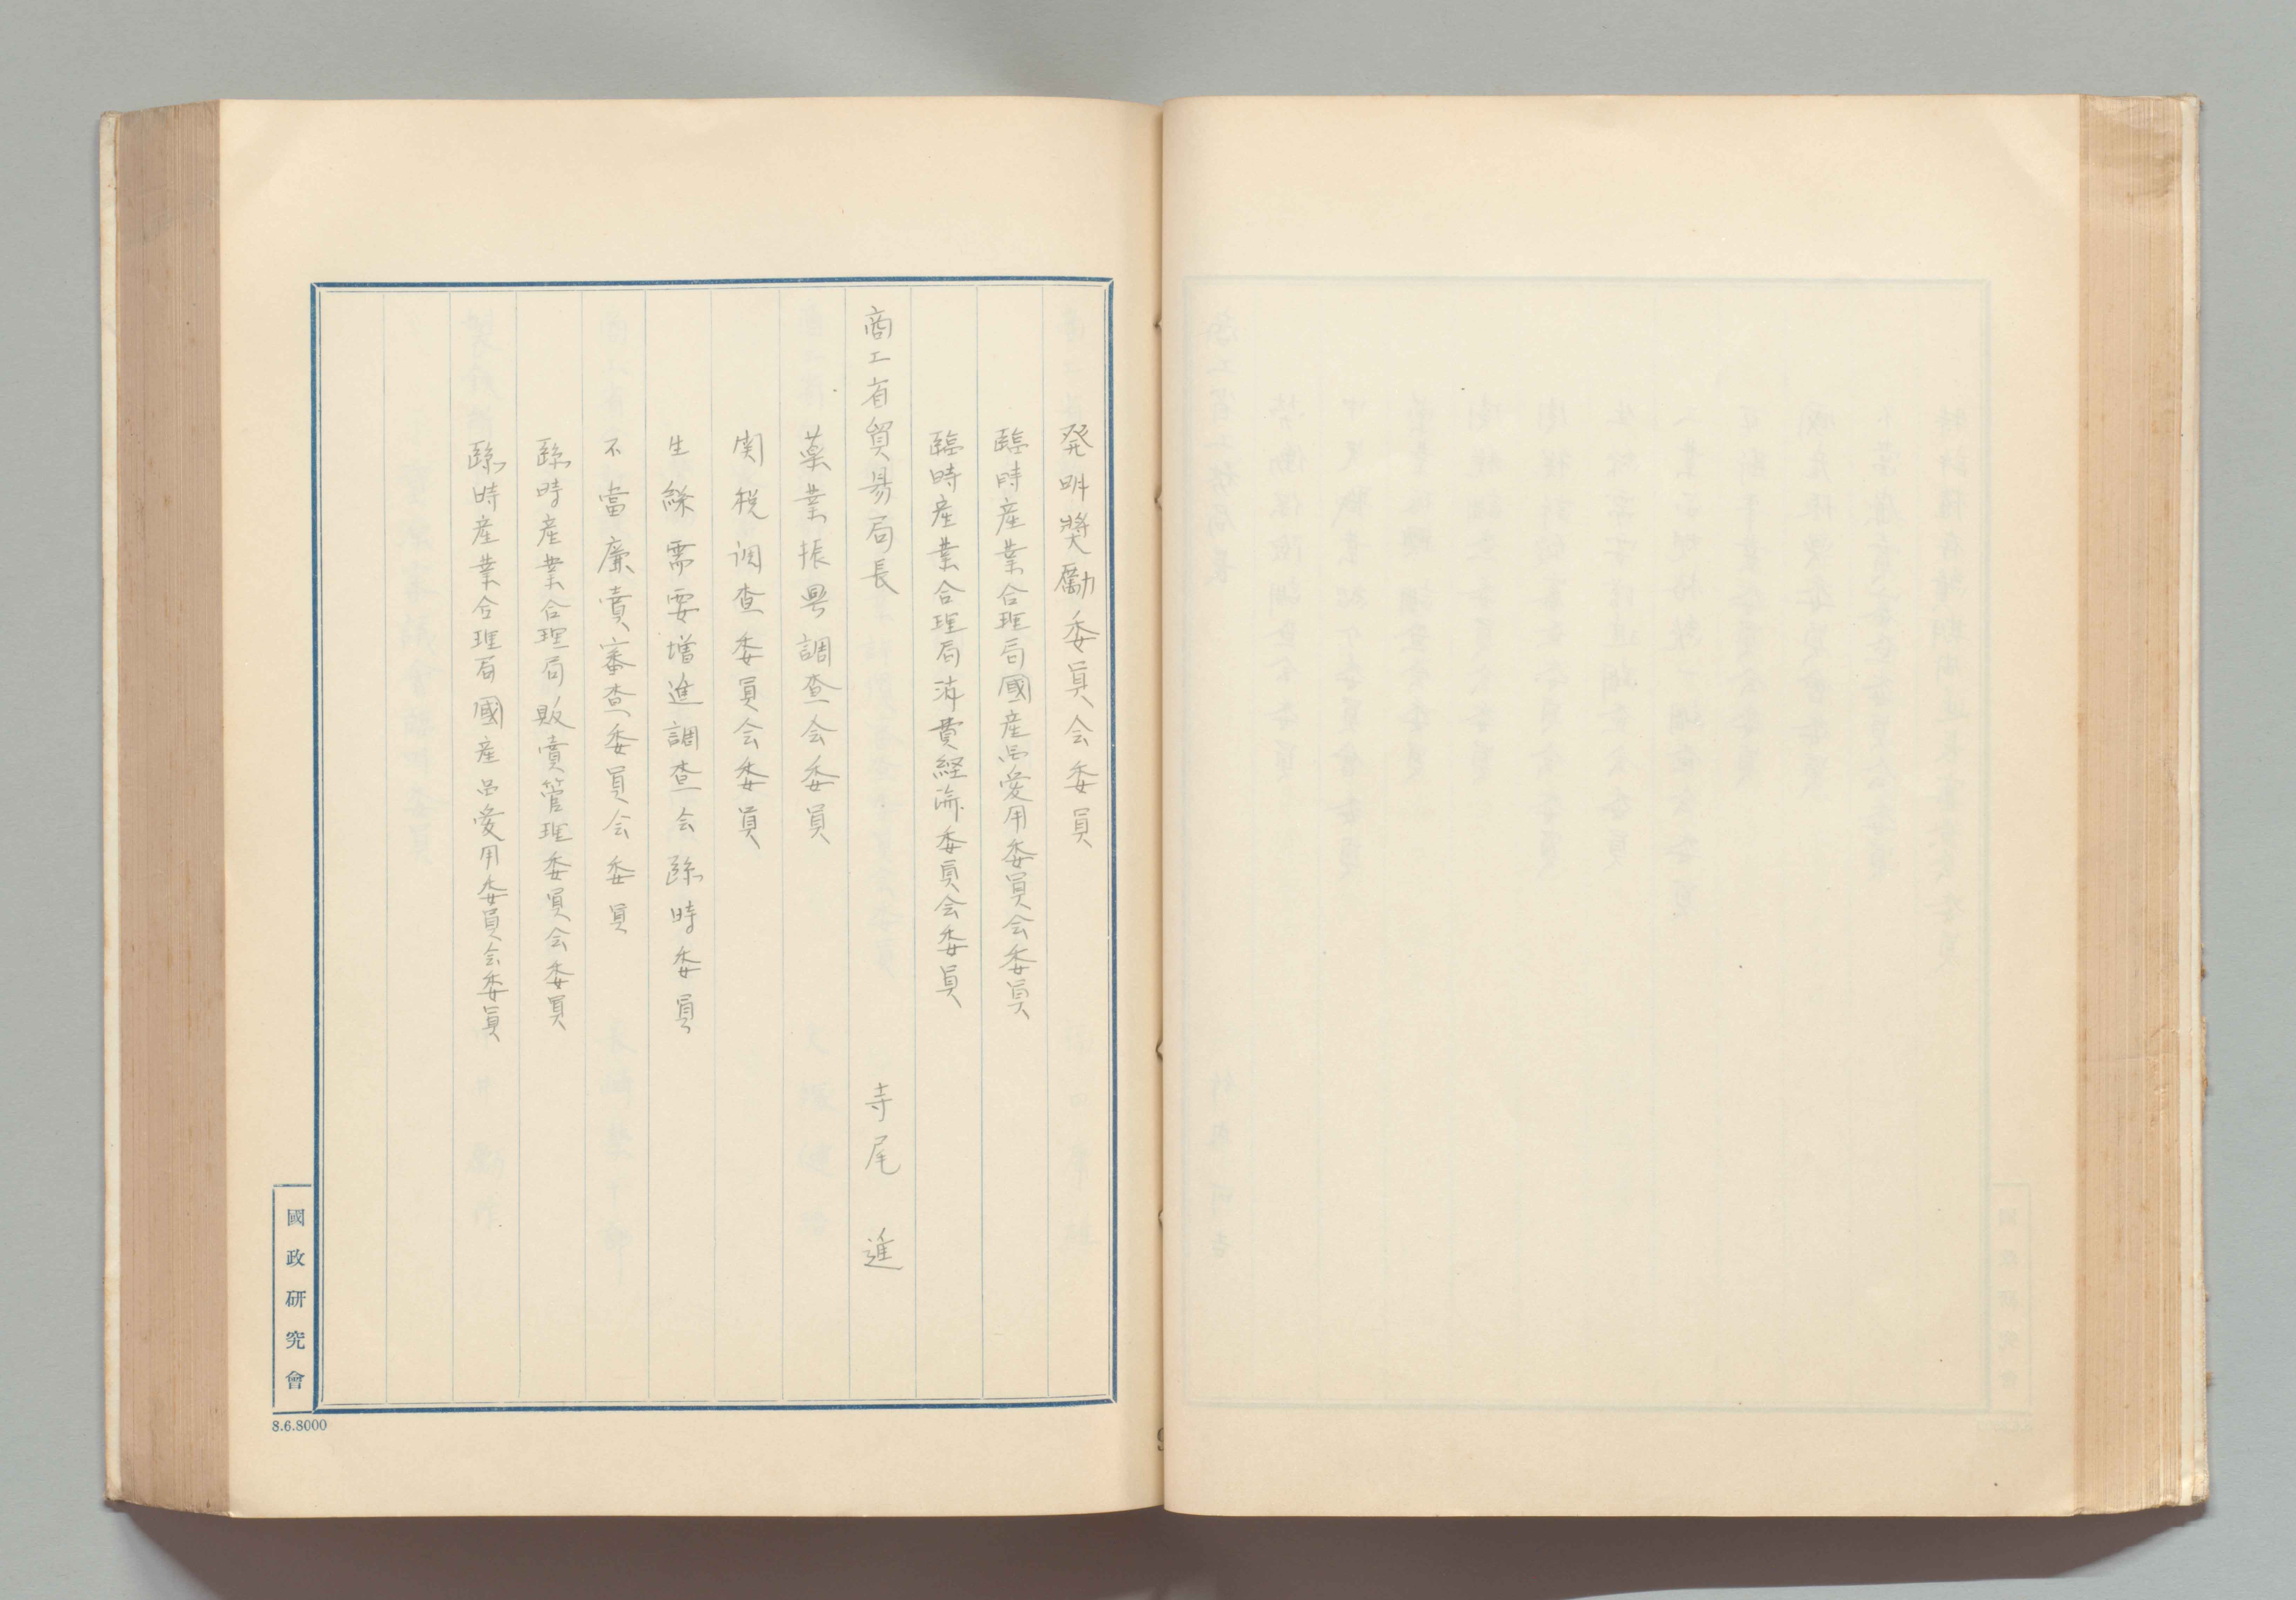 発明奨励委員会委員
臨時産業合理局國産品愛用委員会委員
臨時産業合理局消費経済委員会委員
商工省貿易局長　寺尾　進
薬業振興調査会委員
関税調査委員会委員
生絲需要増進調査会臨時委員
不當廉賣審査委員会委員
臨時産業合理局販賣管理委員会委員
臨時産業合理局國産品愛用委員会委員
國政研究會
8.6.8000